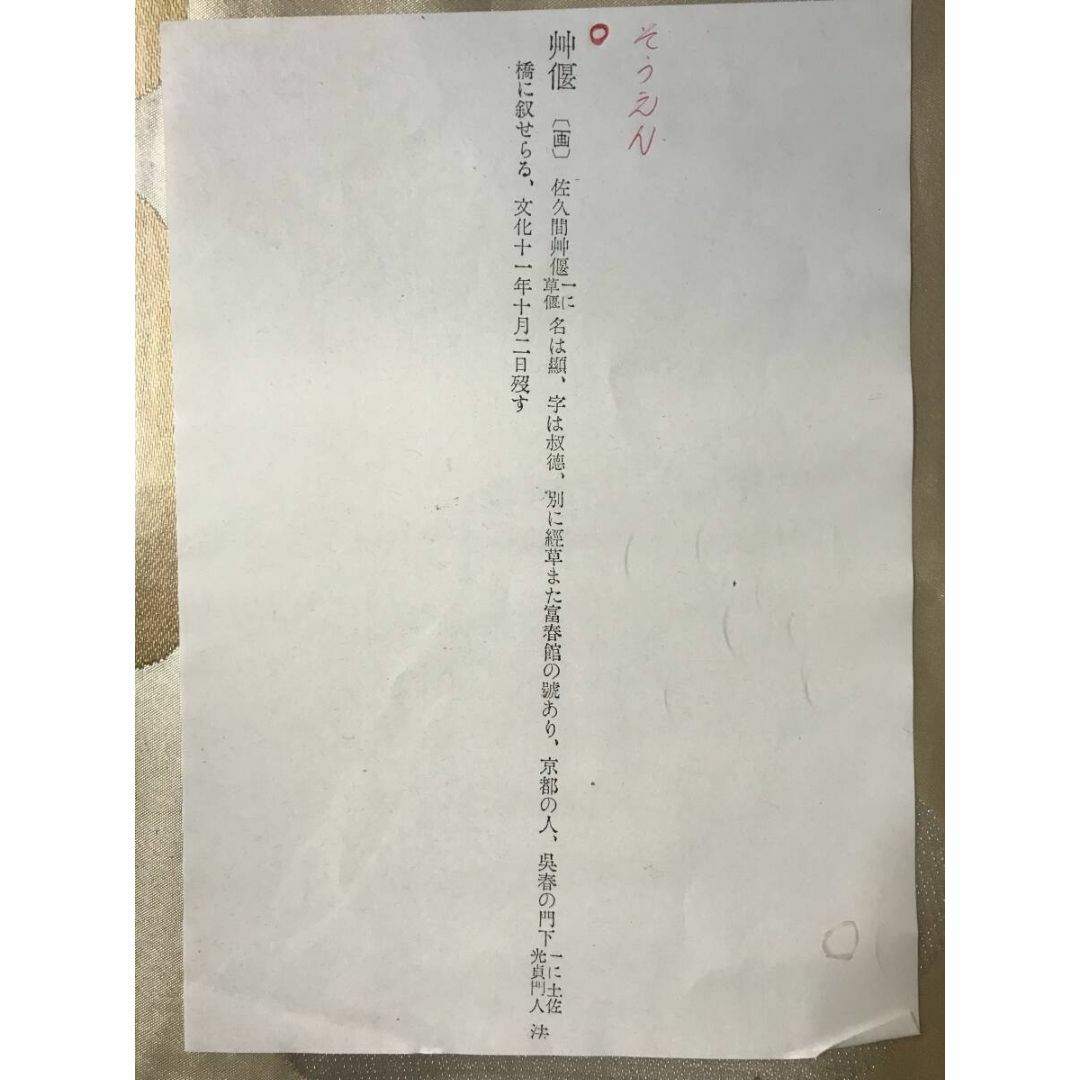 そうえん
艸偃 〔画〕 佐久間艸偃一に草偃名は顯、字は叔德、別に經草また富春館の號あり、京都の人、吳春の門下一に土佐光貞門人 法
橋に叙せらる、文化十一年十月二日歿す